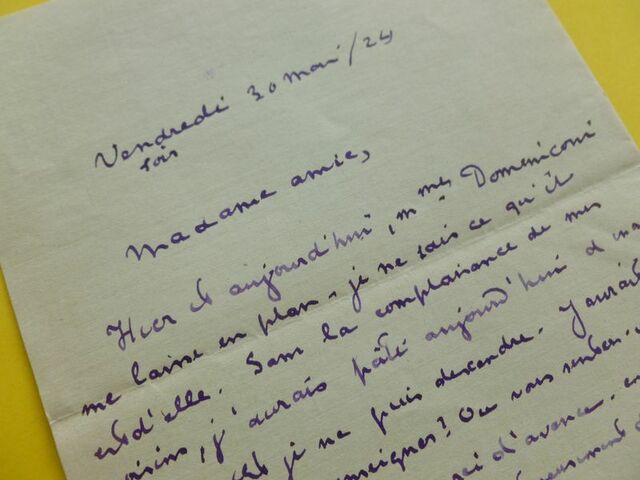 Vendredi 30 mai/24
soir
Madame amie,
Hier et aujourd'hui, Mmes Domeniconi
me laisse en plan, je ne sais ce qu'il
est d'elle. Sans la complaisance de mes
voisins, j'aurais pâté aujourd'hui
je ne puis descendre. J'aurais
enseigner? Ou vous
merci d'avance, en